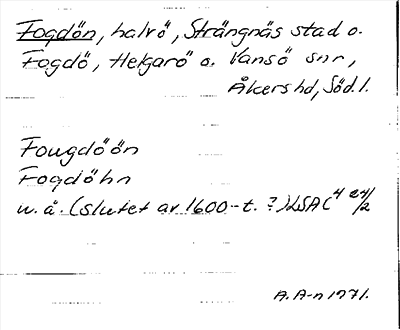 Fogdön, halvö, Strängnäs stad o.
Fogdö, Helgarö o. Vansö snr,
Åkers hd, Söd. l.
Fougdöön
Fogdöhn
u. å. (slutet av 1600-t. ?) LSA C4 24/2
A. A-n 1971.